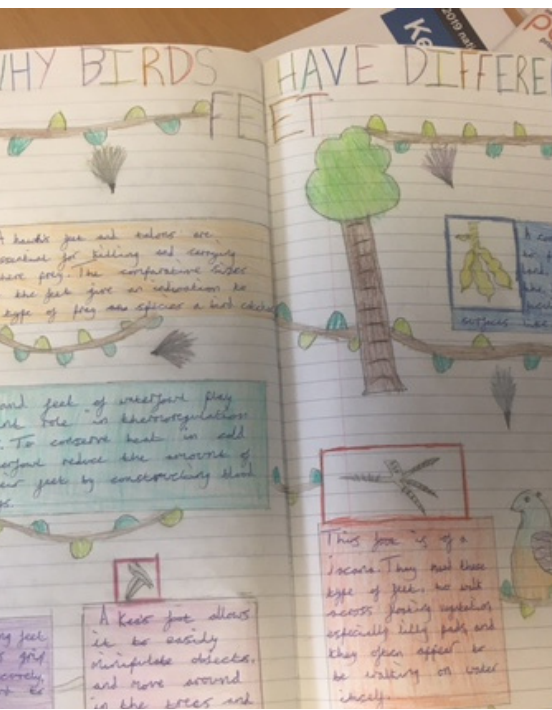 2019 nati
Ke
WHY BIRDS HAVE DIFFERE
FEET
A hawk's feet and talons are
essential for killing and carrying
there prey. The comparative sizes
the feet give an indication to
type of prey species a bird catches
A co
to
surfaces
and feet of waterfowl play
role in thermoregulation
. To conserve heat in cold
erfowl reduce the amount of
feet by constructing blood
gs.
ng feet
grip
to
A Kea's foot allows
it to easily
minipulate obbjects,
and move around
in the trees and
This foot is of a
Jacana. They need these
type of feet to walk
across floating vegetation
especially lilly pads, and
they often appear to
be walking on water
itself.